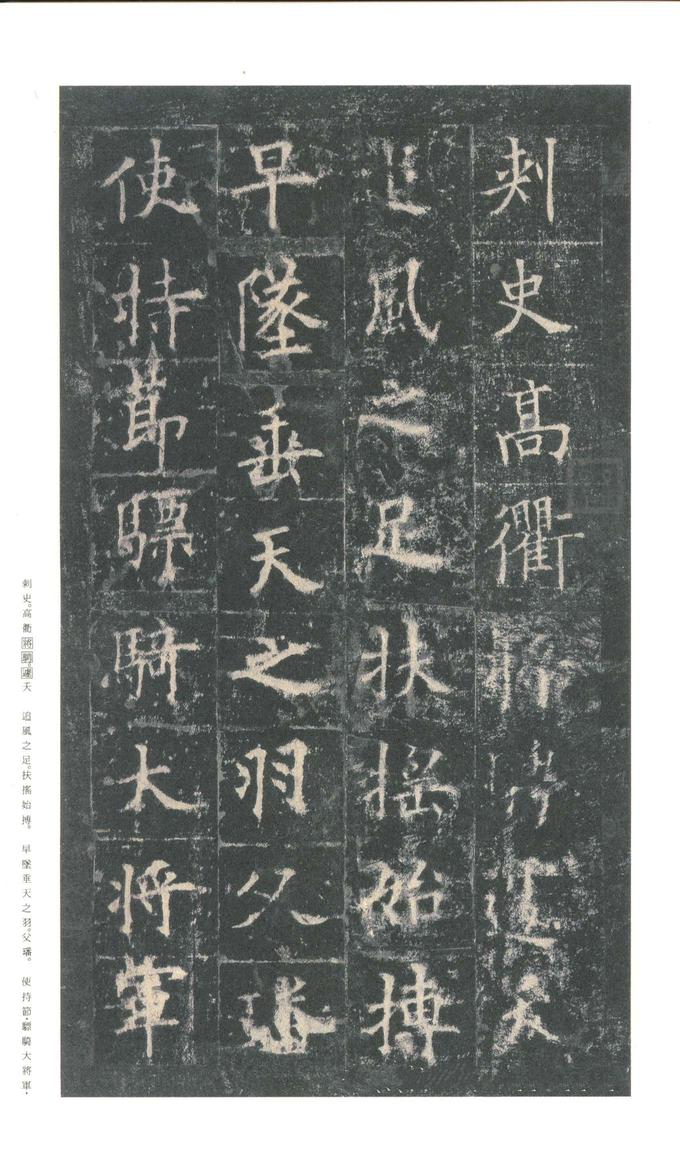 刺史高衢將騁逸天
追風之足扶搖始搏
早墜垂天之羽父璠
使持節驃騎大將軍
刺史。高衢將騁。逸天　追風之足。扶搖始搏。　早墜垂天之羽。父璠。　使持節・驃騎大將軍・